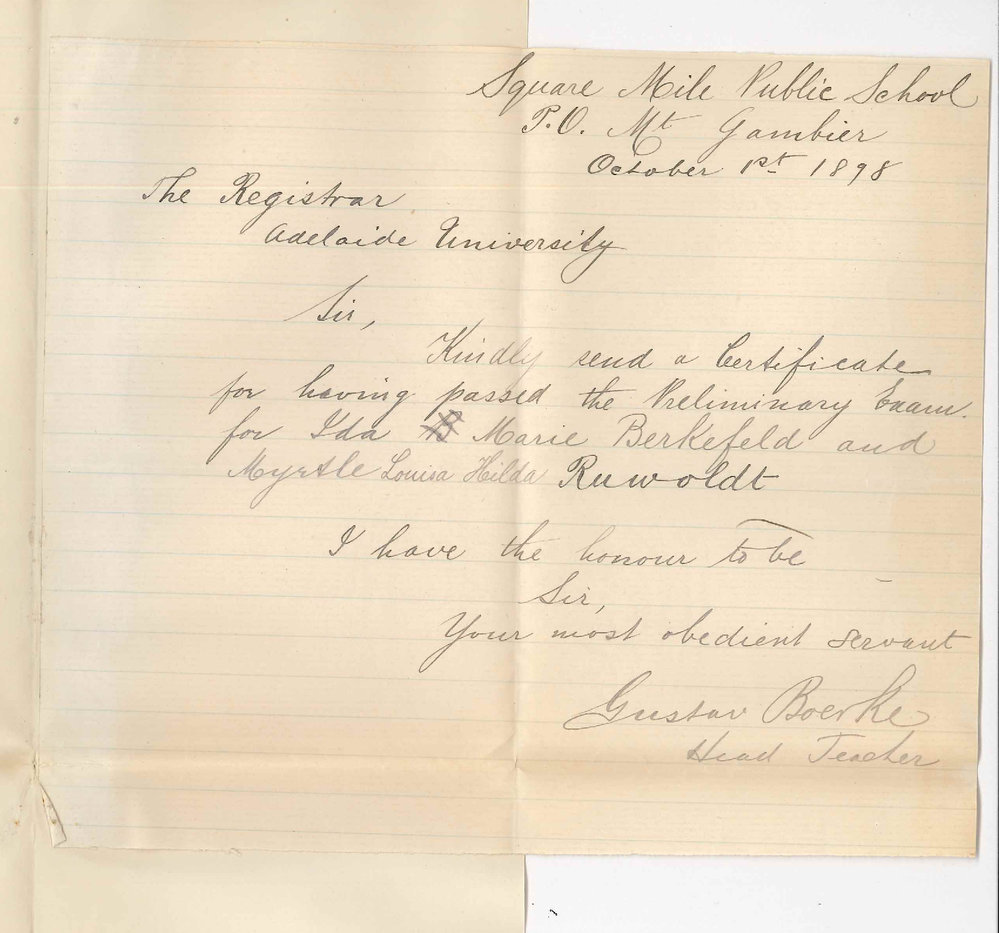 Square Mile Public School
P.O. Mt Gambier
October 1st 1898
The Registrar
Adelaide University
Sir,
Kindly send a Certificate
for having passed the Preliminary Exam.
for Ida Marie Berkefeld and
Myrtle Louisa Hilda Ruwoldt
I have the honour to be
Sir,
Your most obedient servant
Gustav Boerke
Head Teacher